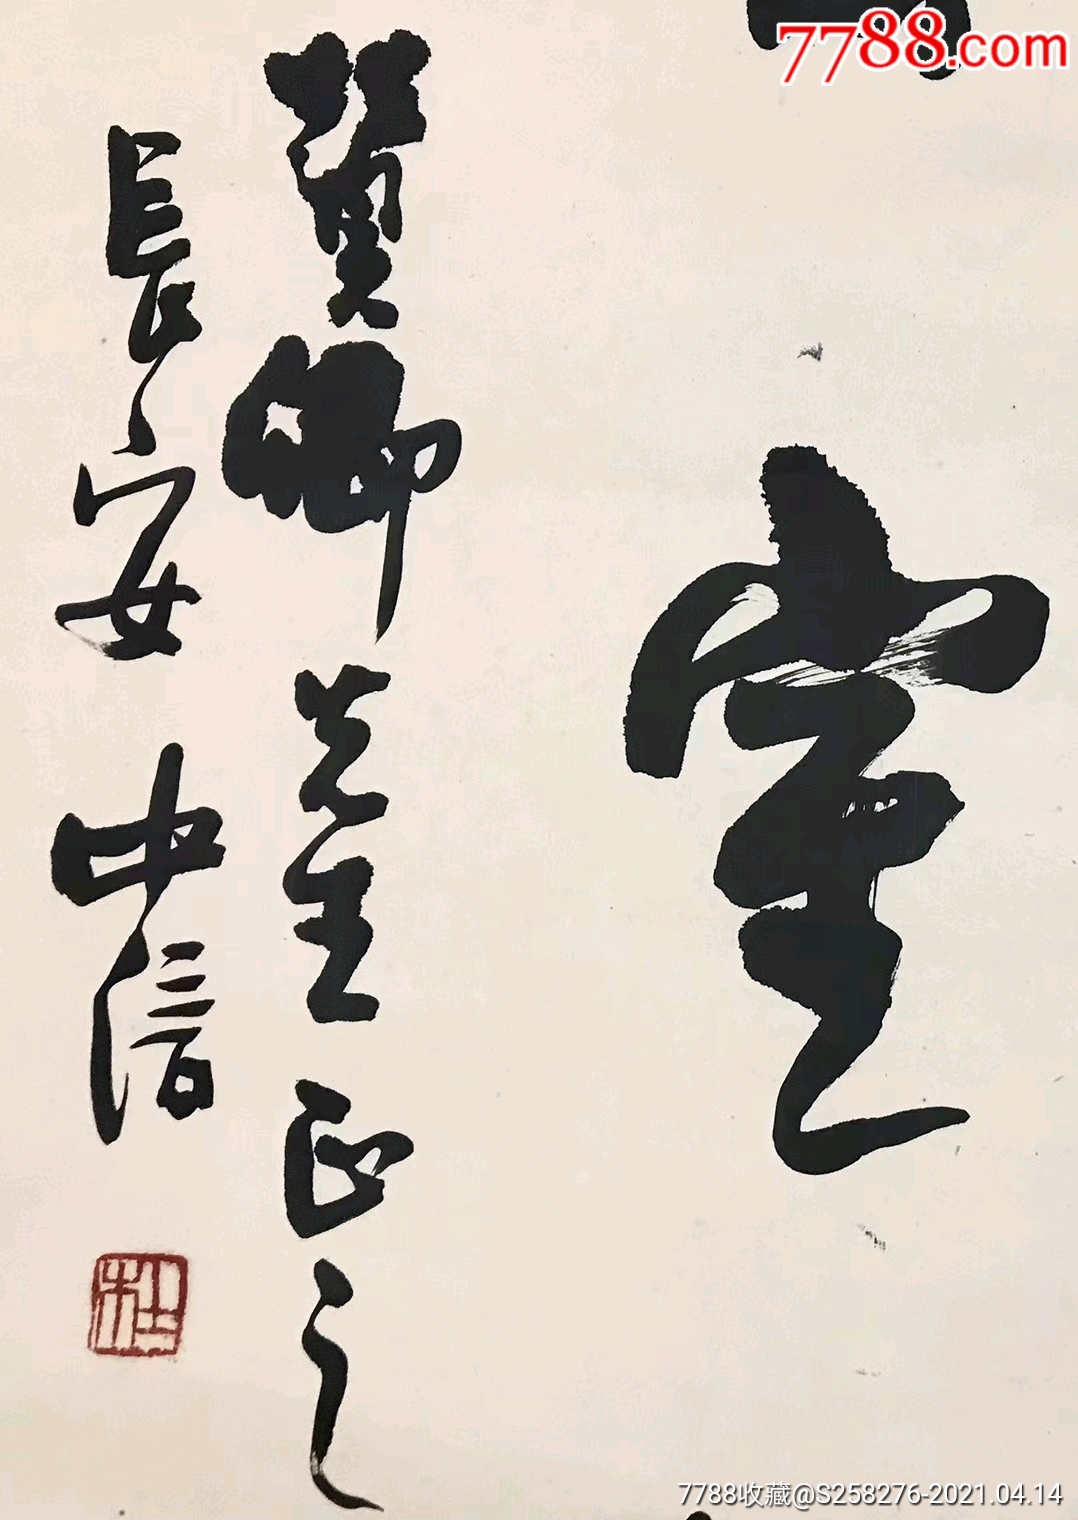 7788.com
卿先生正之
長安中信
杜
7788收藏@S258276-2021.04.14